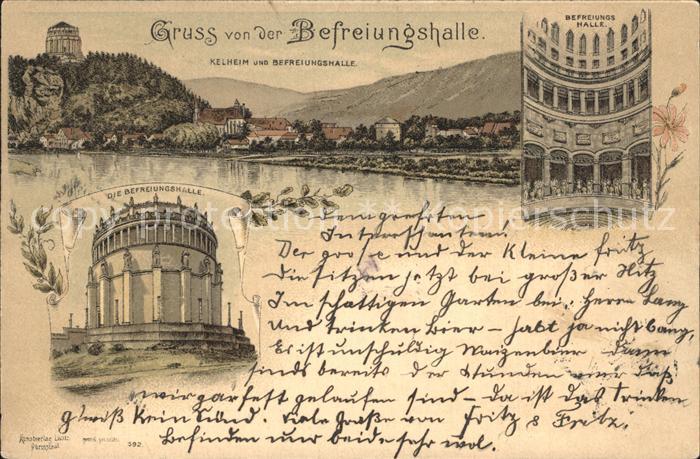 Gruss von der Befreiungshalle.
KELHEIM UND BEFREIUNGSHALLE.
BEFREIUNGS
HALLE.
DIE BEFREIUNGSHALLE.
Dem geehrten
Der große und der Kleine Fritz
die sitzen jetzt bei großer Hitz
Im schattigen Garten bei Herrn Lang
Und trinken Bier – habt ja nicht bang,
Es ist unschuldig Waizenbier
sind bereits der Stunden vier daß
wir garfest gelaufen sind – da ist das trinken
gwiß kein Sünd. Viele Grüße von Fritz & Fritz.
Befinden uns beide sehr wol.
Kunstverlag
592.